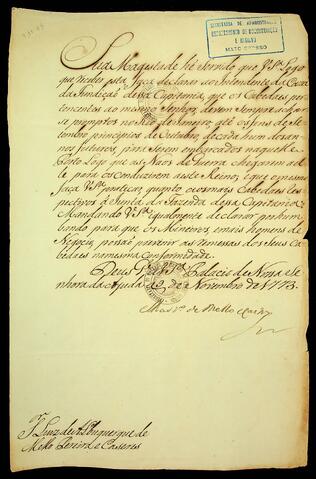 SECRETARIA DE ADMINISTRAÇÃO
DEPARTAMENTO DE DOCUMENTAÇÃO
E ARQUIVO
MATO GROSSO
Sua Magestade hé servido que V. S.ª logo
que receber esta, faça declarar ao Intendente da Caza
da fundição dessa Capitania, que os Cabedaes per-
tencentes ao mesmo Senhor, devem
se promptos no Rio de Janeiro até os fins de Se-
tembro, principios de Outubro, de cada hum dos an-
nos futuros, para serem embarcados naquelle
Porto logo que as Naos de Guerra chegarem a el-
le para os conduzirem a este Reino; e que o mesmo
faça V. S.ª praticar, quanto aos mais Cabedaes res-
pectivos à Junta da Fazenda dessa Capitania:
Mandando V. S.ª igualmente declarar por hum
bando para que os Mineiros, e mais homens de
Negocio, possaõ prevenir as remessas dos seus Ca-
bedaes na mesma conformidade.
Deos G.e a V. S.ª Palacio de Nossa Se-
nhora da Ajuda de Novembro de 1773
Mart.o de Mello e Castro
S.r Luiz de Albuquerque de
Mello Pereira e Caseres